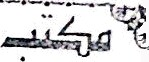 مكتب